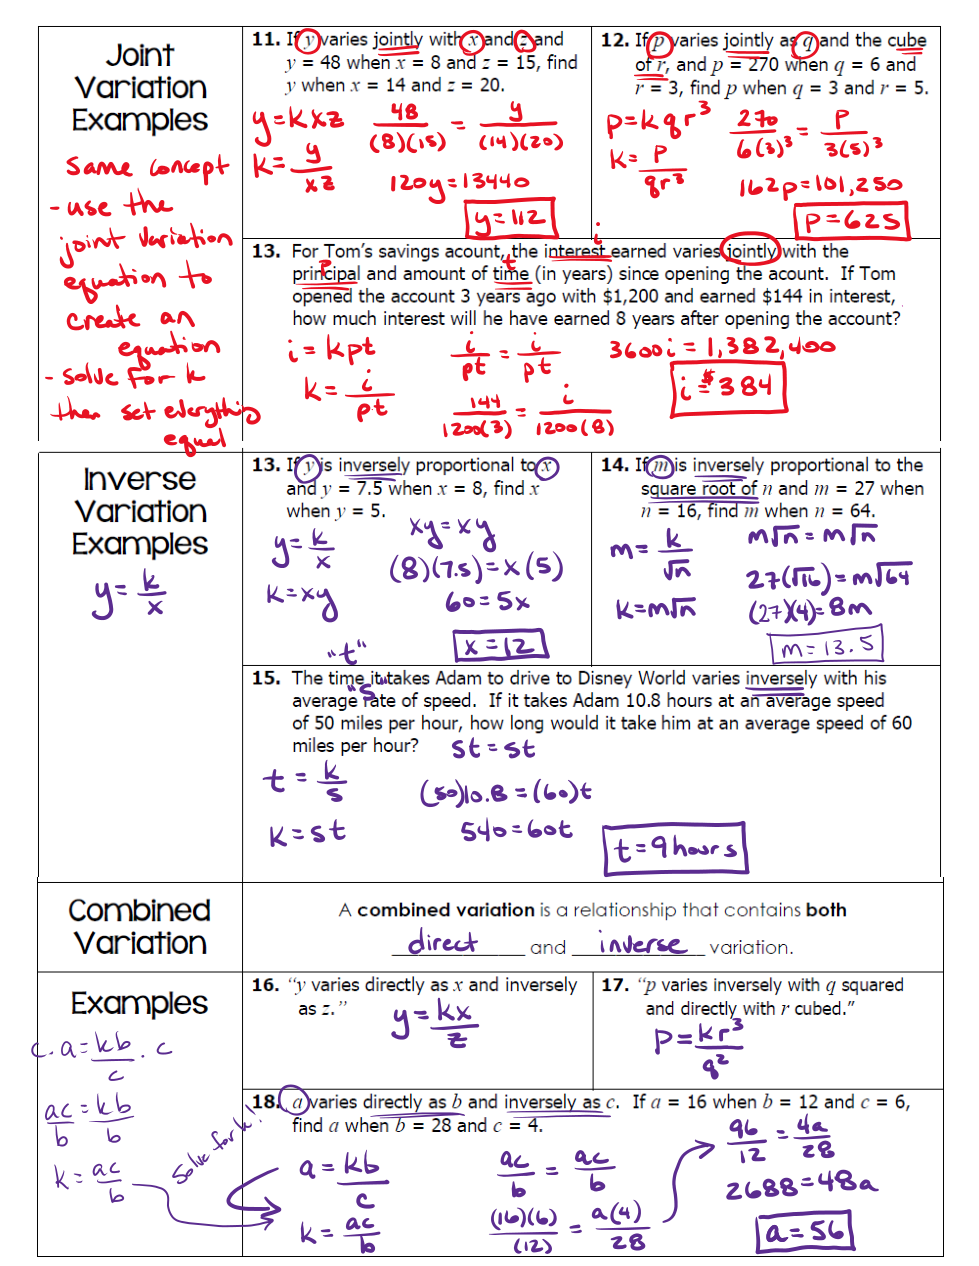 Joint
Variation
Examples
same concept
- use the
joint variation
equation to
create an
equation
- solve for k
then set everything
equal
11. If y varies jointly with x and z and
y = 48 when x = 8 and z = 15, find
y when x = 14 and z = 20.
y = kxz
k = y/xz
48/(8)(15) = y/(14)(20)
120y = 13440
y = 112
12. If p varies jointly as q and the cube
of r, and p = 270 when q = 6 and
r = 3, find p when q = 3 and r = 5.
p = kqr³
k = p/qr³
270/6(3)³ = p/3(5)³
162p = 101,250
p = 625
i
13. For Tom's savings acount, the interest earned varies jointly with the
p t
principal and amount of time (in years) since opening the acount. If Tom
opened the account 3 years ago with $1,200 and earned $144 in interest,
how much interest will he have earned 8 years after opening the account?
i = kpt
k = i/pt
i/pt = i/pt
144/1200(3) = i/1200(8)
3600i = 1,382,400
i = $384
Inverse
Variation
Examples
y = k/x
13. If y is inversely proportional to x
and y = 7.5 when x = 8, find x
when y = 5.
y = k/x
k = xy
xy = xy
(8)(7.5) = x(5)
60 = 5x
x = 12
14. If m is inversely proportional to the
square root of n and m = 27 when
n = 16, find m when n = 64.
m = k/√n
k = m√n
m√n = m√n
27(√16) = m√64
(27)(4) = 8m
m = 13.5
"t"
15. The time it takes Adam to drive to Disney World varies inversely with his
"s"
average rate of speed. If it takes Adam 10.8 hours at an average speed
of 50 miles per hour, how long would it take him at an average speed of 60
miles per hour?
t = k/s
k = st
st = st
(50)10.8 = (60)t
540 = 60t
t = 9 hours
Combined
Variation
A combined variation is a relationship that contains both
direct and inverse variation.
Examples
c · a = kb/c · c
ac/b = kb/b
k = ac/b
solve for k!
16. "y varies directly as x and inversely
as z."
y = kx/z
17. "p varies inversely with q squared
and directly with r cubed."
p = kr³/q²
18. a varies directly as b and inversely as c. If a = 16 when b = 12 and c = 6,
find a when b = 28 and c = 4.
a = kb/c
k = ac/b
ac/b = ac/b
(16)(6)/(12) = a(4)/28
96/12 = 4a/28
2688 = 48a
a = 56